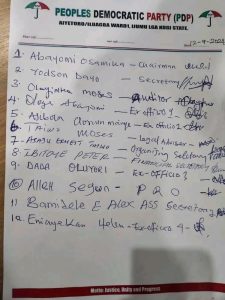 PEOPLES DEMOCRATIC PARTY (PDP)
AIYETORO/ILUAGBA WARD, IJUMU LGA KOGI STATE.
12-9-202
1. Abayomi Osamika - Chairman
2. Dayo - Secretary
3. Olayinka MOSES Auditor
4. Ologe Abayomi Ex officio 1
5. Ajiban Ex-officio 2
6. Taiwo MOSES - Legal Adviser -
7. ERNEST TAIWO Organizing Secretary
8. IBITOYE PETER - FINANCIAL SECRETARY
9. DADA OLUYORI - EX-OFFICIO 3
10 Alleh Segun - P R O
11 Bamidele E Alex ASS Secretary
12. Helen - Ex officio 4 -
Motto: Justice, Unity and Progress